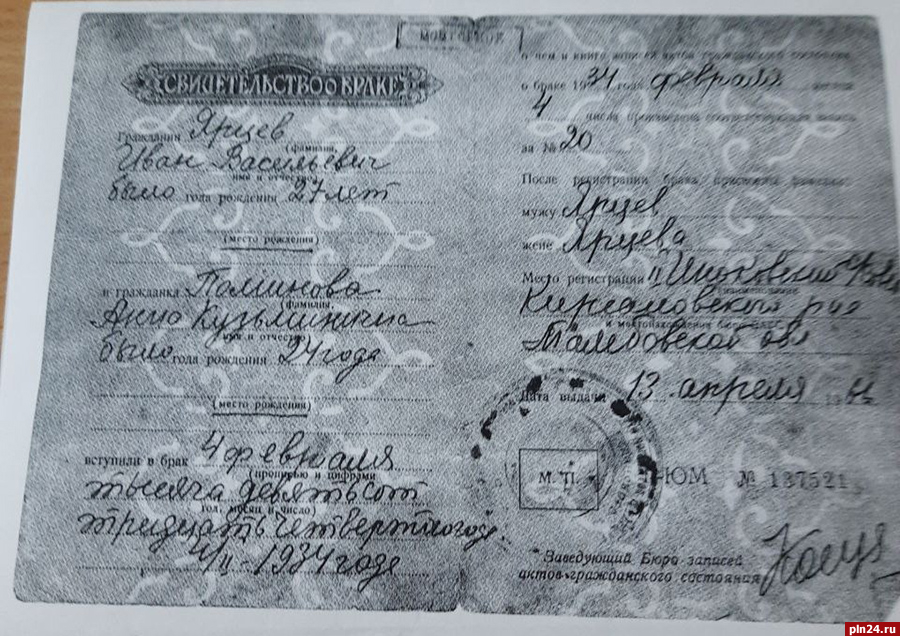 СВИДЕТЕЛЬСТВО о БРАКЕ
Гражданин Ярцев
(фамилия,
Иван Васильевич
имя и отчество)
было года рождения 27 лет
(место рождения)
и гражданка
(фамилия,
Анна Кузьминична
имя и отчество)
было года рождения 24 года
(место рождения)
вступили в брак 4 февраля
(прописью и цифрами
тысяча девятьсот
год, месяц и число)
тридцать четвертого года
4/II-1934 года
о чем в книге записей актов гражданского состояния
о браке 1934 года февраля месяца
4 числа произведена соответствующая запись
за № 20
После регистрации брака присвоены фамилии:
мужу Ярцев
жене Ярцева
Место регистрации
Кирсановского р-на
и местонахождение бюро ЗАГС
Тамбовской обл
Дата выдачи 13 апреля
М. П.
ЮМ № 137521
Заведующий Бюро записей
актов гражданского состояния
pln24.ru